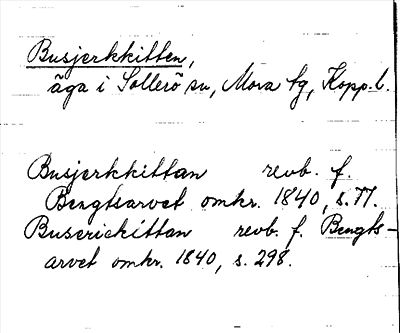 Busjerkkitten,
äga i Sollerö sn, Mora tg, Kopp. l.
Busjerkkittan revb. f.
Bengtsarvet omkr. 1840, s. 77.
Buserickittan revb. f. Bengts-
arvet omkr. 1840, s. 298.